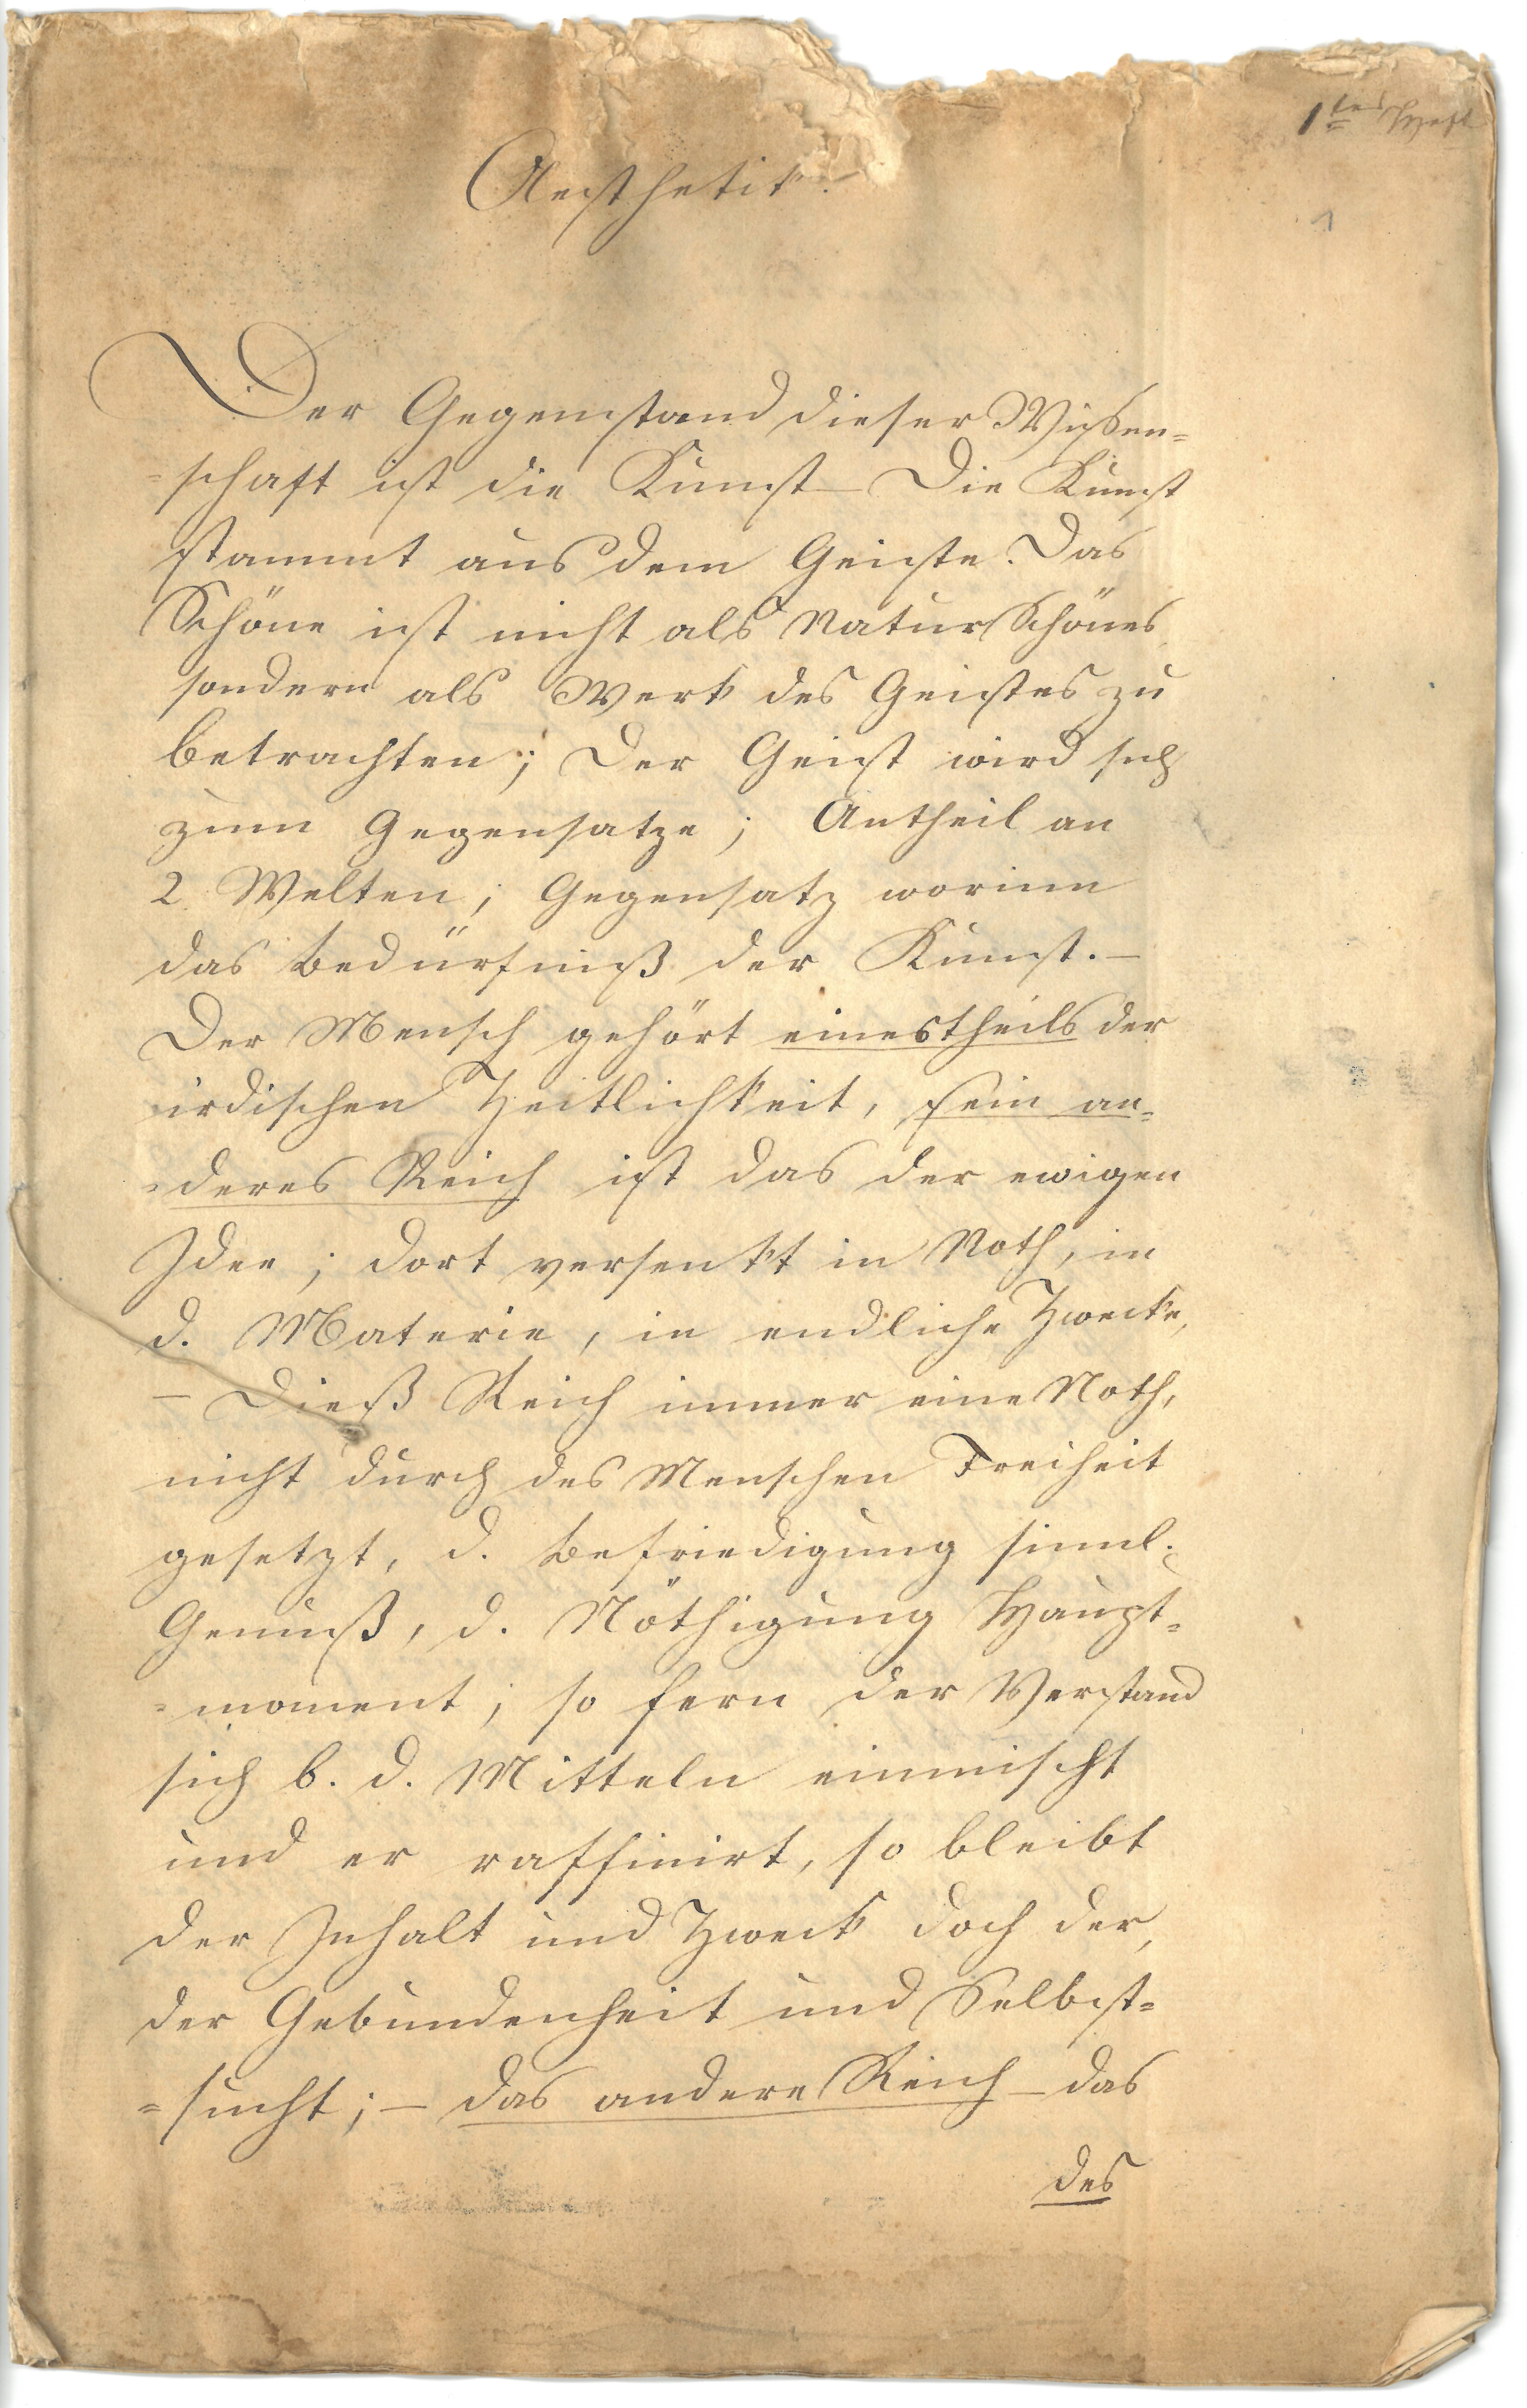 1tes Heft
1
Aesthetik.
Der Gegenstand dieser Wissen=
=schaft ist die Kunst – Die Kunst
stammt aus dem Geiste. Das
Schöne ist nicht als NaturSchönes
sondern als Werk des Geistes zu
betrachten; Der Geist wird sich
zum Gegensatze; Antheil an
2 Welten; Gegensatz worinn
das Bedürfniß der Kunst. –
Der Mensch gehört einestheils der
irdischen Zeitlichkeit, sein an=
=deres Reich ist das der ewigen
Idee; dort versenkt in Noth, in
d. Materie, in endliche Zwecke,
– Dieß Reich immer eine Noth,
nicht durch des Menschen Freiheit
gesetzt, d. Befriedigung sinnl.
Genuß, d. Nöthigung Haupt=
=moment; so fern der Verstand
sich b. d. Mitteln einmischt
und er raffinirt, so bleibt
der Inhalt und Zweck doch der,
der Gebundenheit und Selbst=
=sucht; – das andere Reich – das
des